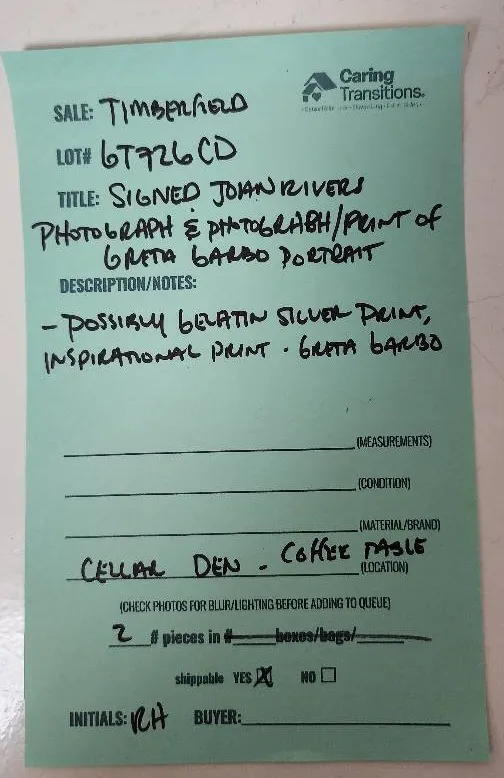 Caring
Transitions®
SALE: TIMBERFIELD
LOT# GT726CD
TITLE: SIGNED JOAN RIVERS
PHOTOGRAPH & PHOTOGRAPH/PRINT OF
GRETA GARBO PORTRAIT
DESCRIPTION/NOTES:
- POSSIBLY GELATIN SILVER PRINT,
INSPIRATIONAL PRINT · GRETA GARBO
(MEASUREMENTS)
(CONDITION)
(MATERIAL/BRAND)
CELLAR DEN - COFFEE TABLE
(LOCATION)
(CHECK PHOTOS FOR BLUR/LIGHTING BEFORE ADDING TO QUEUE)
2 # pieces in # boxes/bags/
shippable YES ☒ NO ☐
INITIALS: RH BUYER: